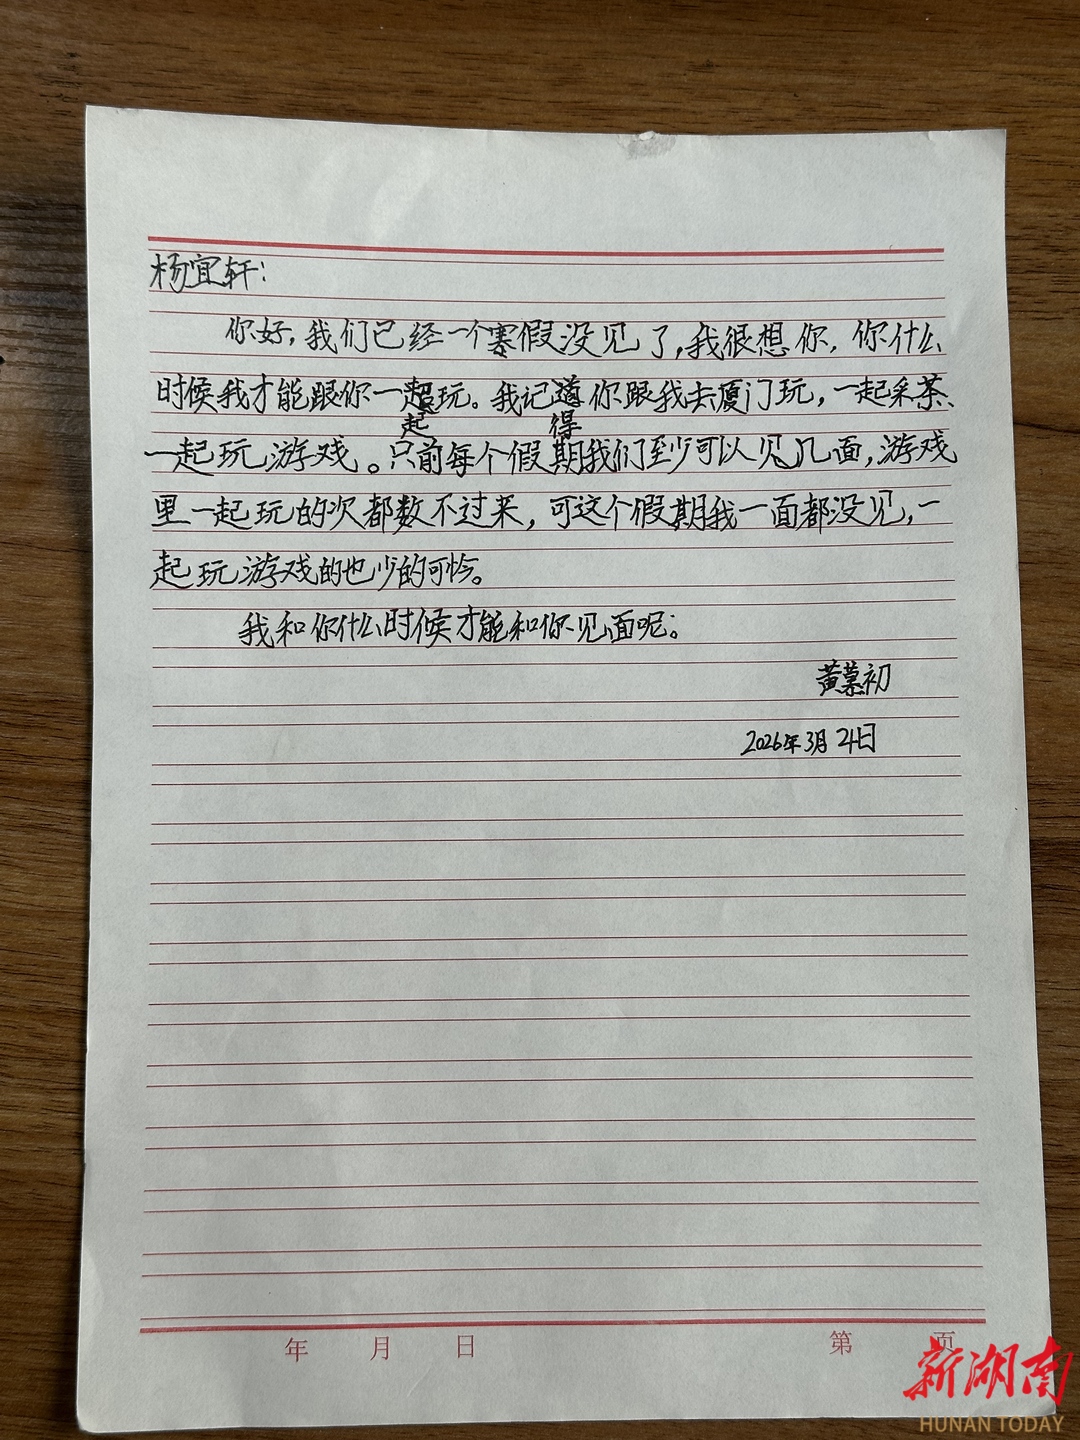 杨宜轩：
你好，我们已经一个寒假没见了，我很想你，你什么
时候我才能跟你一超玩。我记道你跟我去厦门玩，一起采茶、
起 得
一起玩游戏。只前每个假期我们至少可以见几面，游戏
里一起玩的次都数不过来，可这个假期我一面都没见，一
起玩游戏的也少的可怜。
我和你什么时候才能和你见面呢。
黄慕初
2026年3月24日
年 月 日 第 页
新湖南
HUNAN TODAY